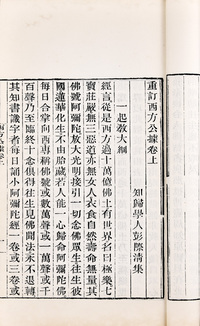 重訂西方公據卷上
知歸學人彭際清集
一起教大綱
經言從是西方過十萬億佛土有世界名曰極樂七
寶莊嚴無三惡道亦無女人衣食自然壽命無量其
佛號阿彌陀放大光明接引一切念佛眾生往生彼
國蓮華化生不由胎藏若人能一心歸命阿彌陀佛
每日合掌向西專稱佛號或數萬聲或一萬聲或千
百聲乃至臨終十念俱得往生見佛聞法永不退轉
其知書識字者每日誦小阿彌陀經一卷或三卷或